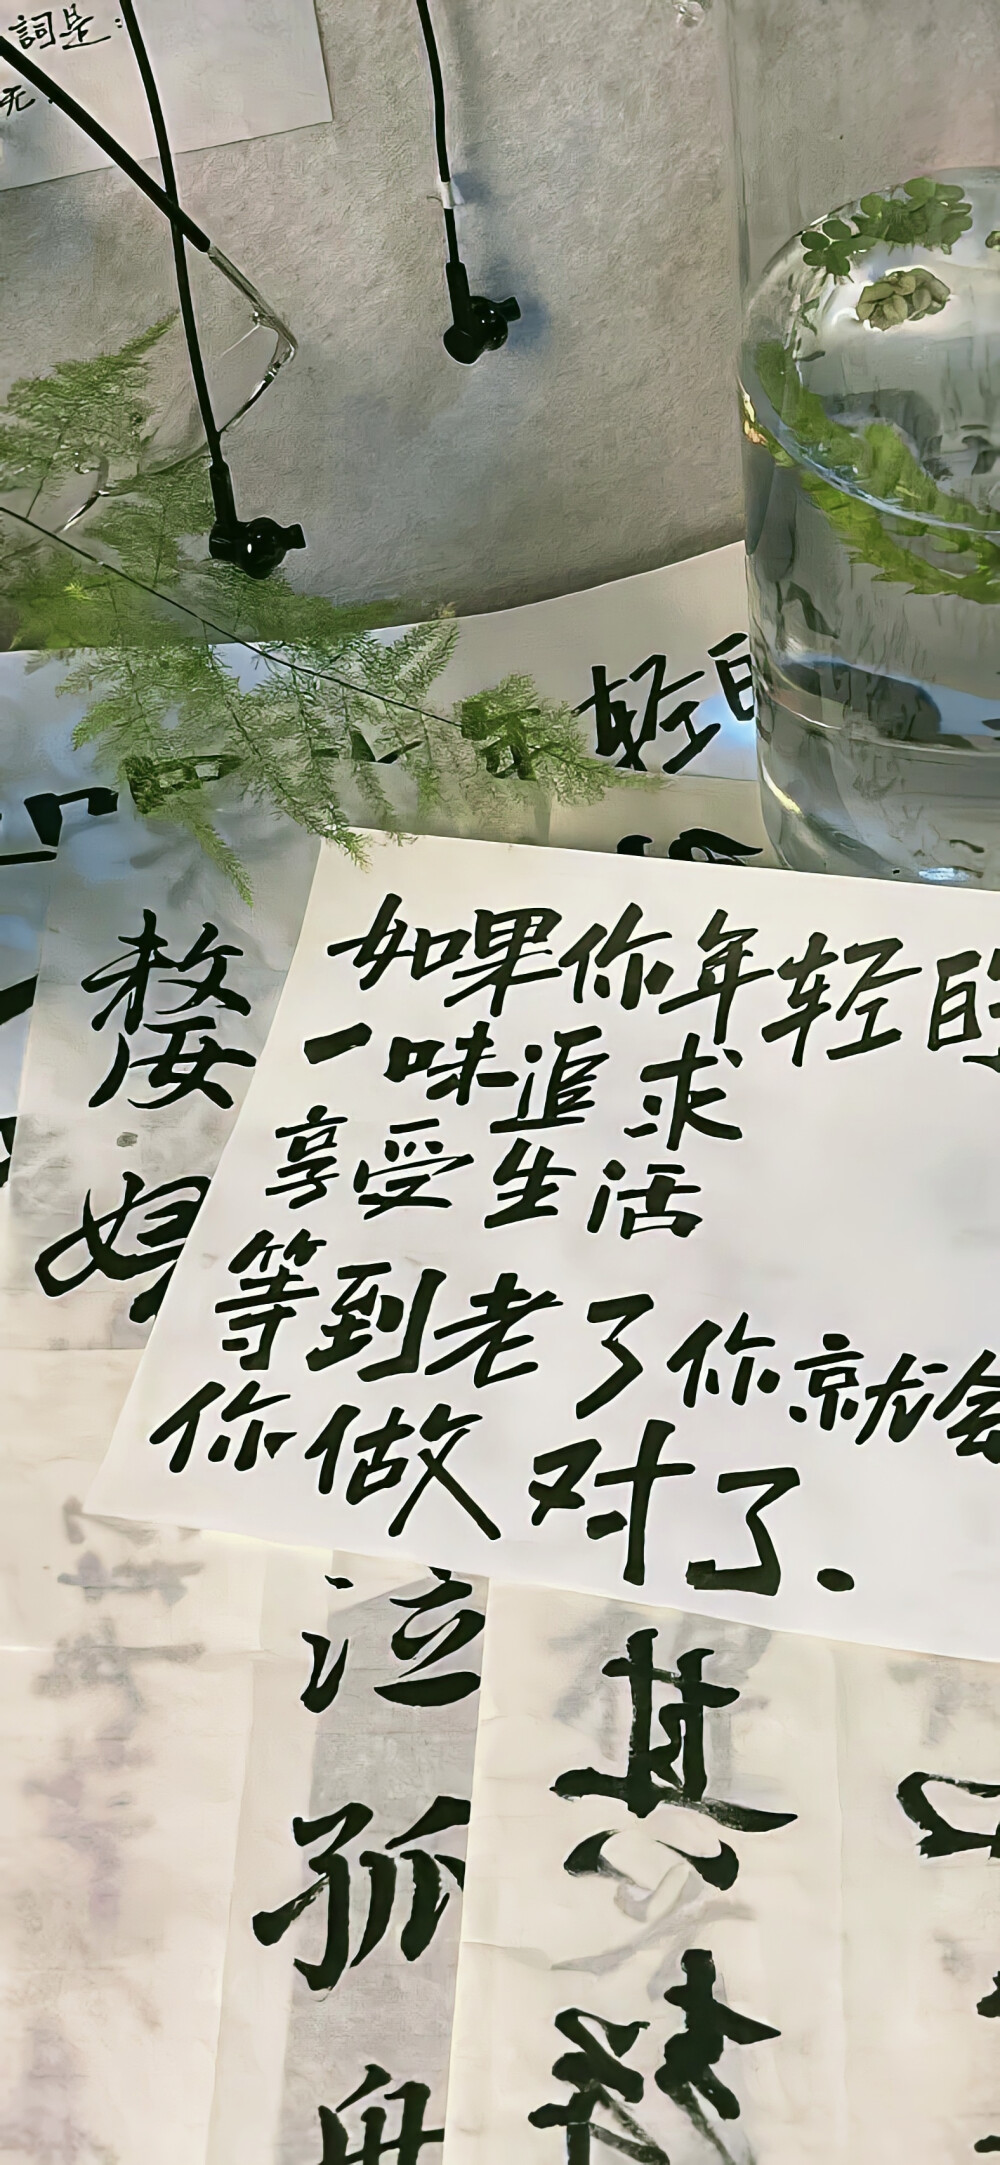 詞是:
无.
轻
如果你年轻的
一味追求
享受生活
等到老了你就会
你做对了.
嫠
妇
泣
孤
舟
其